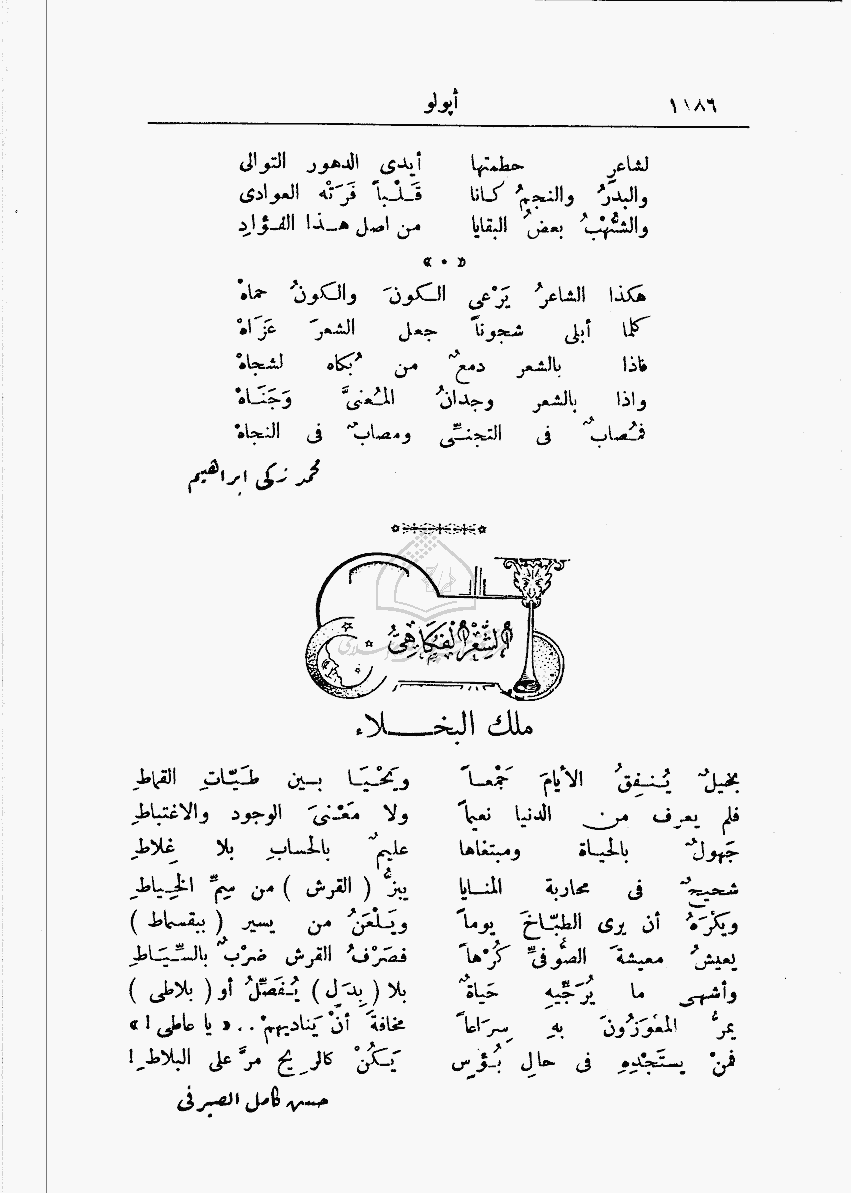 ١١٨٦ أپولو
لشاعرٍ حطمتها أيدى الدهور التوالى
والبدرُ والنجمُ كانا قلباً فَرَتْه العوادى
والشُّهْبُ بعضُ البقايا من اصل هذا الفؤادِ
« ٠ »
هكذا الشاعرُ يَرْعى الكونَ والكونُ حماهْ
كلما أبلى شجوناً جعل الشعرَ عَزَاهْ
فاذا بالشعر دمعٌ من بُكاه لشجاهْ
واذا بالشعر وجدانُ المُعنىَّ وَجَنَاهْ
فمُصابٌ فى التجنِّى ومصابٌ فى النجاهْ
محمد زكى ابراهيم
الشِّعْرُ الْفُكَاهِىُّ
ملك البخلاء
بخيلٌ يُنفِقُ الأيامَ جَمْعاً ويَحْيَا بين طَيّاتِ القماطِ
فلم يعرف من الدنيا نعيماً ولا مَعْنىَ الوجود والاغتباطِ
جَهولٌ بالحياة ومبتغاها عليمٌ بالحسابِ بلا غِلاطِ
شحيحٌ فى محاربة المنايا يبزُّ ( القرش ) من سِمِّ الخِياطِ
ويَكْرَهُ أن يرى الطبّاخَ يوماً ويَلْعَنُ من يسير ( ببقسماط )
يعيشُ معيشةَ الصُّوفىِّ كُرْهاً فصَرْفُ القرش ضَرْبٌ بالسِّيَاطِ
وأشهى ما يُرَجِّيهِ حَياةٌ بلا ( بِدَلٍ ) يُفَصِّلُ أو ( بلاطى )
يمرُّ المعْوَزُونَ بهِ سِرَاعاً مخافةَ أنْ يناديهمْ .. « يا عاطى ! »
فمنْ يستَجْدِهِ فى حالِ بُؤسٍ يَكُنْ كالريح مرَّ على البلاطِ !
حسن كامل الصيرفى